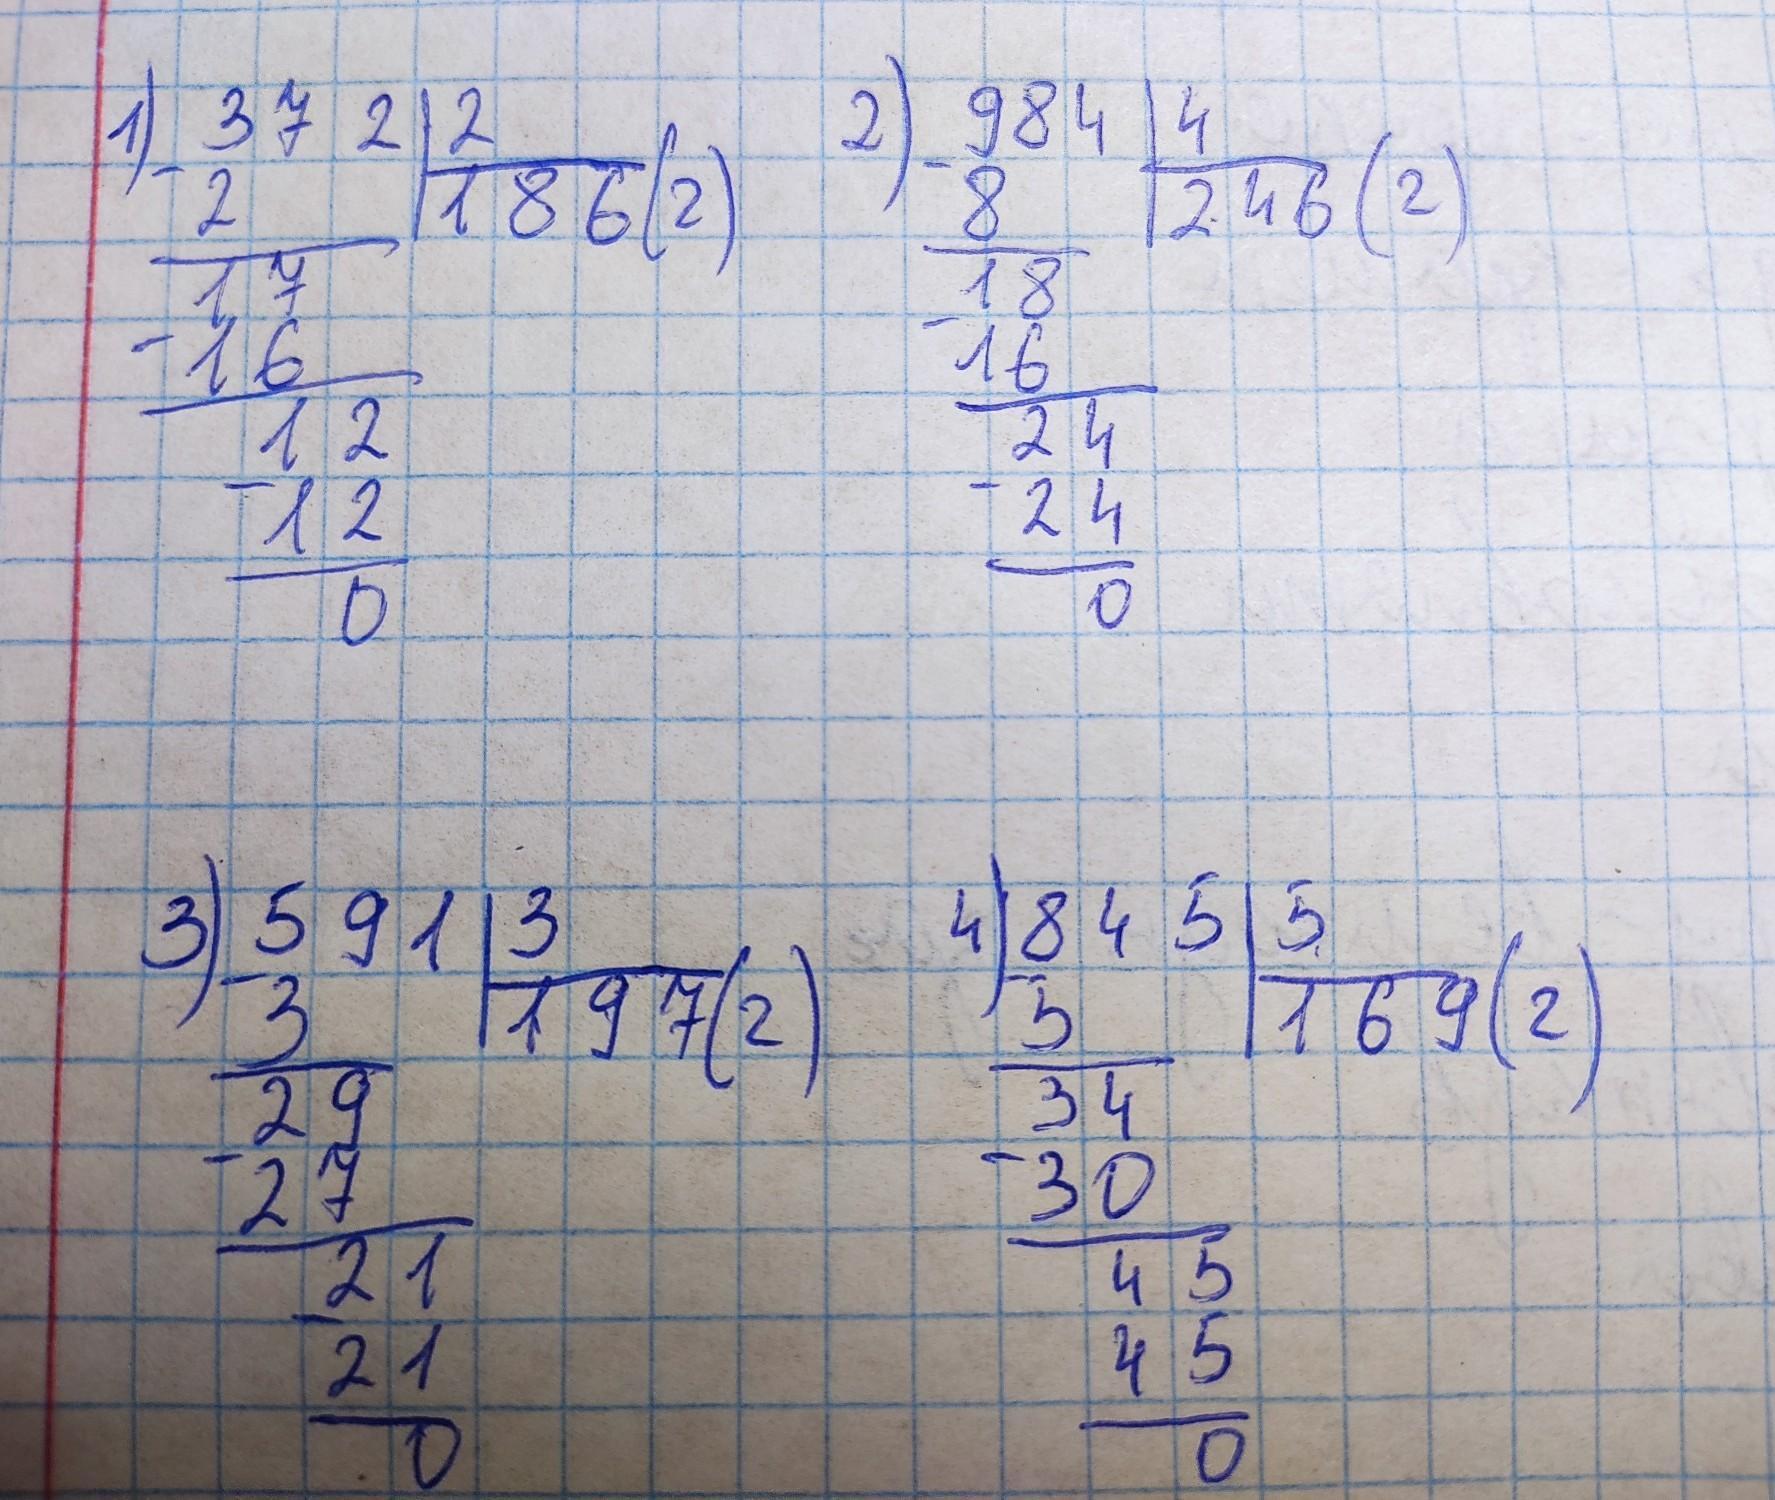 1) - 3 7 2 | 2
2 | 1 8 6 (2)
1 7
- 1 6
1 2
- 1 2
0
2) - 9 8 4 | 4
8 | 2 4 6 (2)
1 8
- 1 6
2 4
- 2 4
0
3) - 5 9 1 | 3
3 | 1 9 7 (2)
2 9
- 2 7
2 1
- 2 1
0
4) - 8 4 5 | 5
5 | 1 6 9 (2)
3 4
- 3 0
4 5
4 5
0